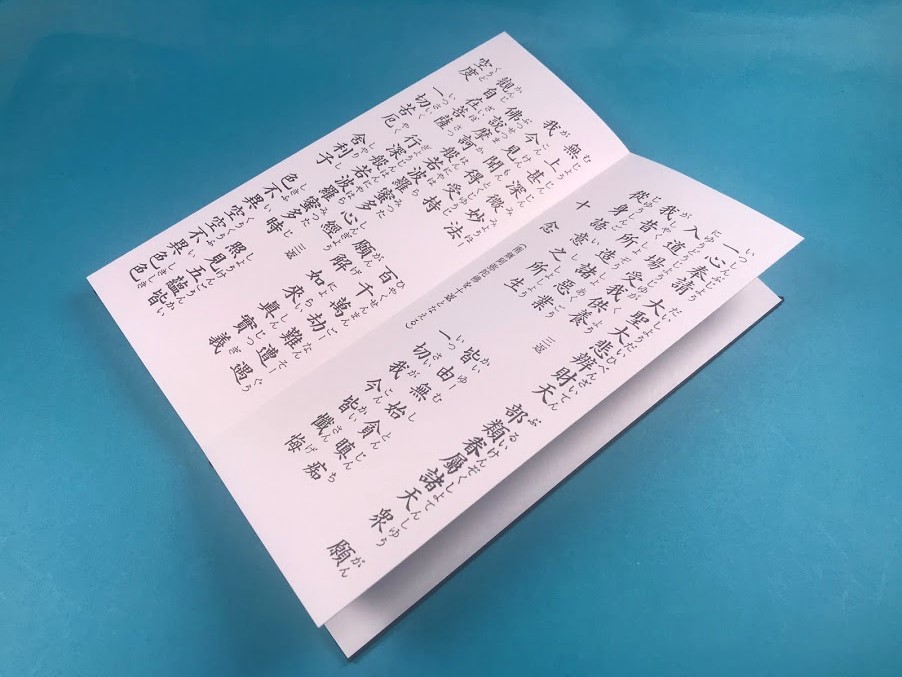 一心奉請 大聖大悲辨財天 部類眷屬諸天衆 願
入道場 受我供養 三返
我昔所造諸惡業 皆由無始貪瞋痴
從身語意之所生 一切我今皆懺悔
十念
無上甚深微妙法 百千萬劫難遭遇
我今見聞得受持 願解如來眞實義
佛説摩訶般若波羅蜜多心經 三返
觀自在菩薩 行深般若波羅蜜多時 照見五蘊皆
空度一切苦厄 舍利子 色不異空空不異色色